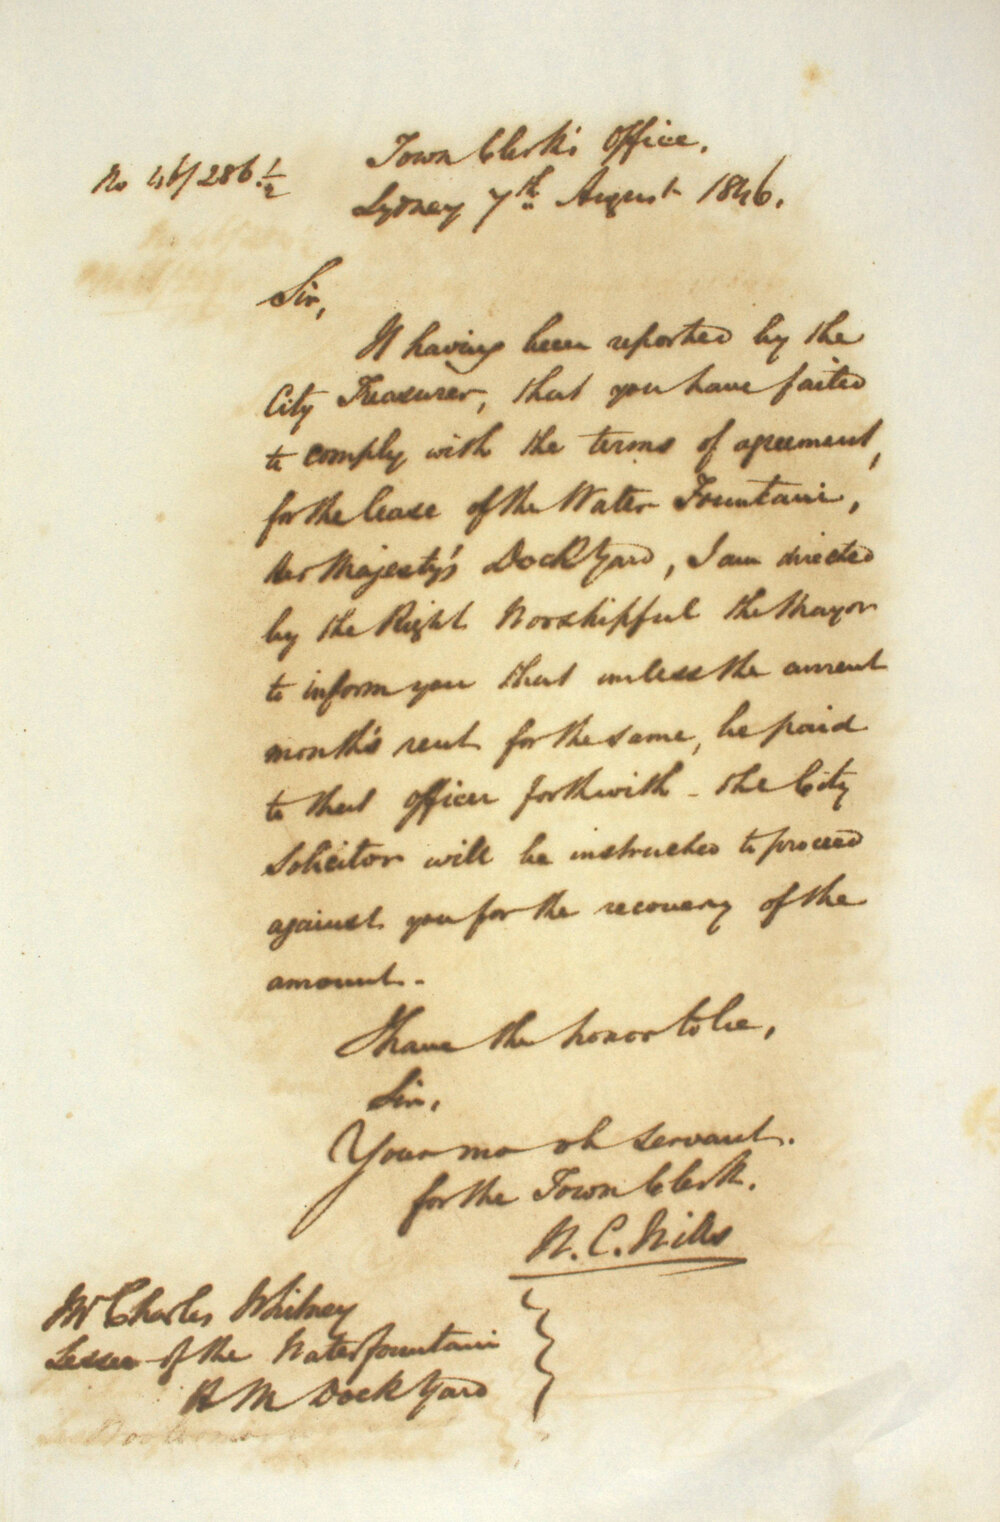 No 46/286.½
Town Clerk's Office.
Sydney 7th August 1846.
Sir,
It having been reported by the
City Treasurer, that you have failed
to comply with the terms of agreement,
for the lease of the Water Fountain,
Her Majesty's Dock Yard, I am directed
by the Right Worshipful the Mayor
to inform you that unless the current
month's rent for the same, be paid
to that officer forthwith - the City
Solicitor will be instructed to proceed
against you for the recovery of the
amount -
I have the honor to be,
Sir,
Your mo ob servant.
for the Town Clerk.
W. C. Wills
Mr Charles Whitney
Lessee of the Water fountain
H M Dock Yard